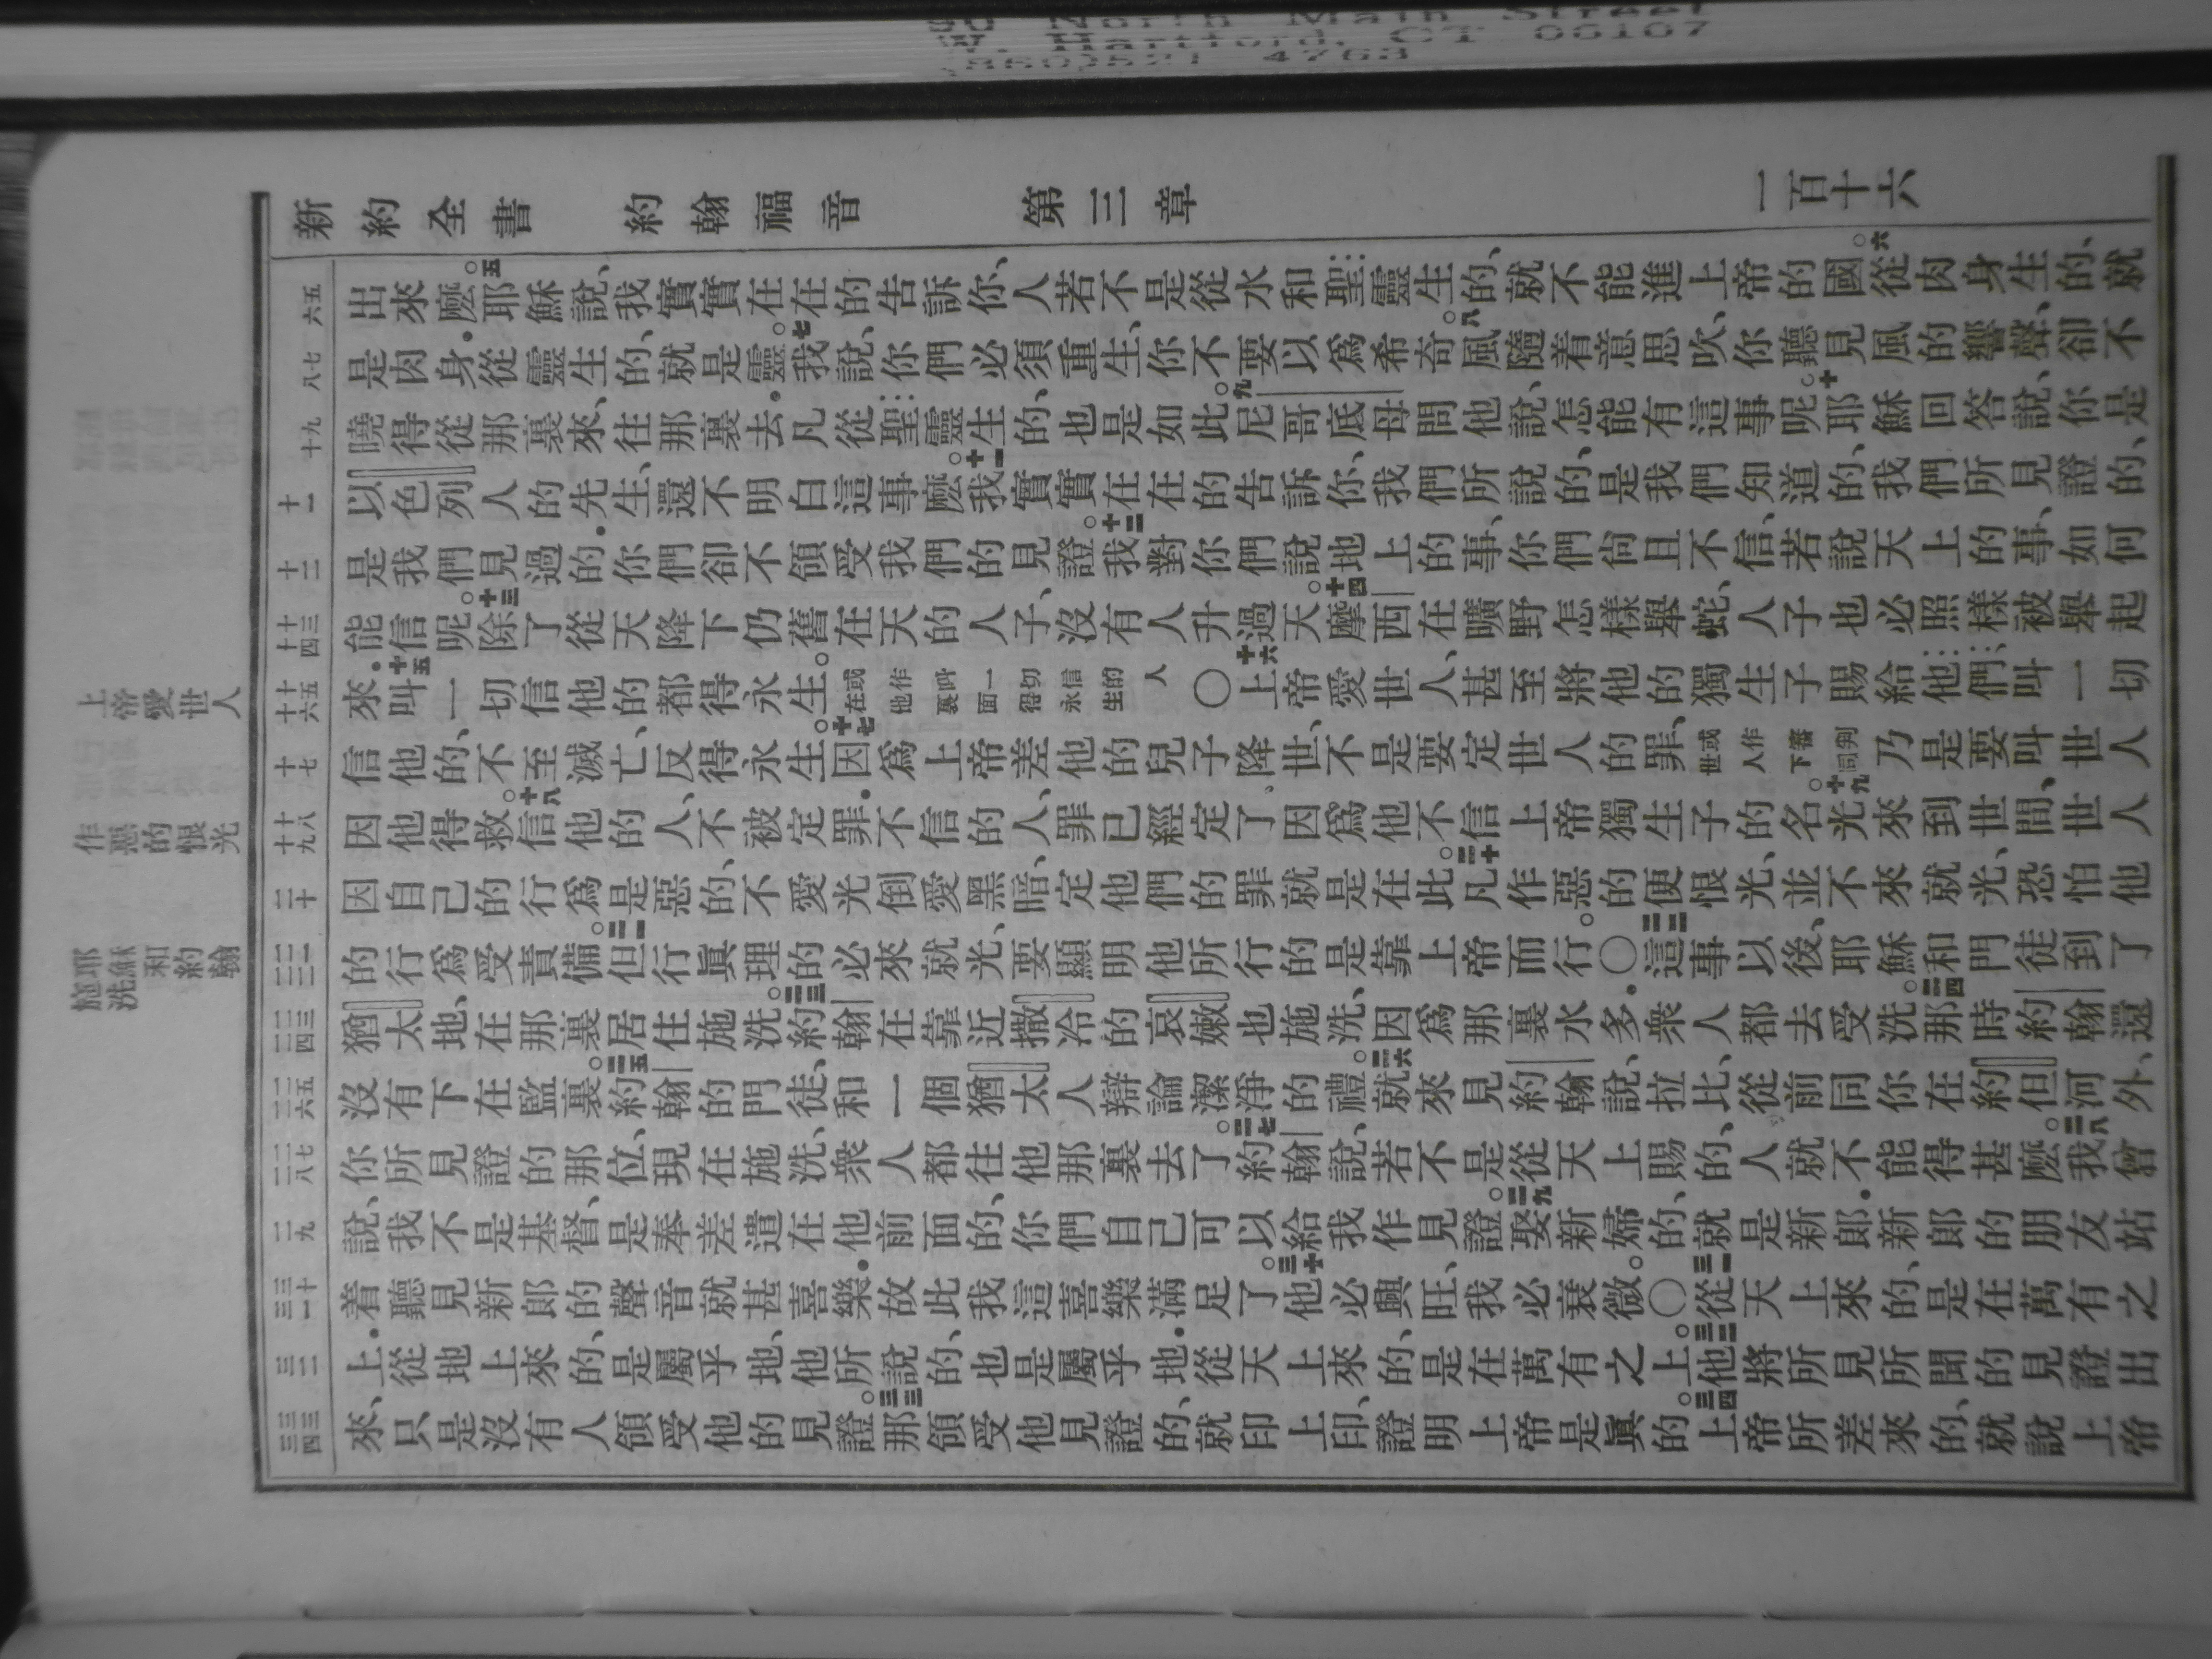 新約全書 約翰福音 第三章 一百十六
出來麼。五耶穌說、我實實在在的告訴你、人若不是從水和聖靈生的、就不能進上帝的國。六從肉身生的、就
是肉身．從靈生的、就是靈。七我說、你們必須重生、你不要以爲希奇。八風隨着意思吹、你聽見風的響聲、卻不
曉得從那裏來、往那裏去．凡從聖靈生的、也是如此。九尼哥底母問他說、怎能有這事呢。十耶穌回答說、你是
以色列人的先生、還不明白這事麼。十一我實實在在的告訴你、我們所說的、是我們知道的、我們所見證的、
是我們見過的．你們卻不領受我們的見證。十二我對你們說地上的事、你們尙且不信、若說天上的事、如何
能信呢。十三除了從天降下仍舊在天的人子、沒有人升過天。十四摩西在曠野怎樣舉蛇、人子也必照樣被舉起
來．十五叫一切信他的都得永生。或作叫一切信的人在他裏面得永生 〇十六上帝愛世人、甚至將他的獨生子賜給他們、叫一切
信他的、不至滅亡、反得永生。十七因爲上帝差他的兒子降世、不是要定世人的罪、或作審判世人下同 乃是要叫世人
因他得救。十八信他的人、不被定罪．不信的人、罪已經定了、因爲他不信上帝獨生子的名。十九光來到世間、世人
因自己的行爲是惡的、不愛光倒愛黑暗、定他們的罪就是在此。二十凡作惡的便恨光、並不來就光、恐怕他
的行爲受責備。二一但行眞理的必來就光、要顯明他所行的是靠上帝而行。〇二二這事以後、耶穌和門徒到了
猶太地、在那裏居住施洗。二三約翰在靠近撒冷的哀嫩也施洗、因爲那裏水多．衆人都去受洗。二四那時約翰還
沒有下在監裏。二五約翰的門徒、和一個猶太人辯論潔淨的禮。二六就來見約翰說、拉比、從前同你在約但河外、
你所見證的那位、現在施洗、衆人都往他那裏去了。二七約翰說、若不是從天上賜的、人就不能得甚麼。二八我曾
說、我不是基督、是奉差遣在他前面的、你們自己可以給我作見證。二九娶新婦的、就是新郎．新郎的朋友站
着聽見新郎的聲音就甚喜樂．故此我這喜樂滿足了。三十他必興旺、我必衰微。〇三一從天上來的、是在萬有之
上．從地上來的、是屬乎地、他所說的、也是屬乎地．從天上來的、是在萬有之上。三二他將所見所聞的見證出
來、只是沒有人領受他的見證。三三那領受他見證的、就印上印、證明上帝是眞的。三四上帝所差來的、就說上帝
上帝愛世人
作惡的恨光
耶穌和約翰
施洗
五六
七八
九十
十一
十二
十三十四
十五十六
十七
十八十九
二十
二一二二
二三二四
二五二六
二七二八
二九
三十三一
三二
三三三四